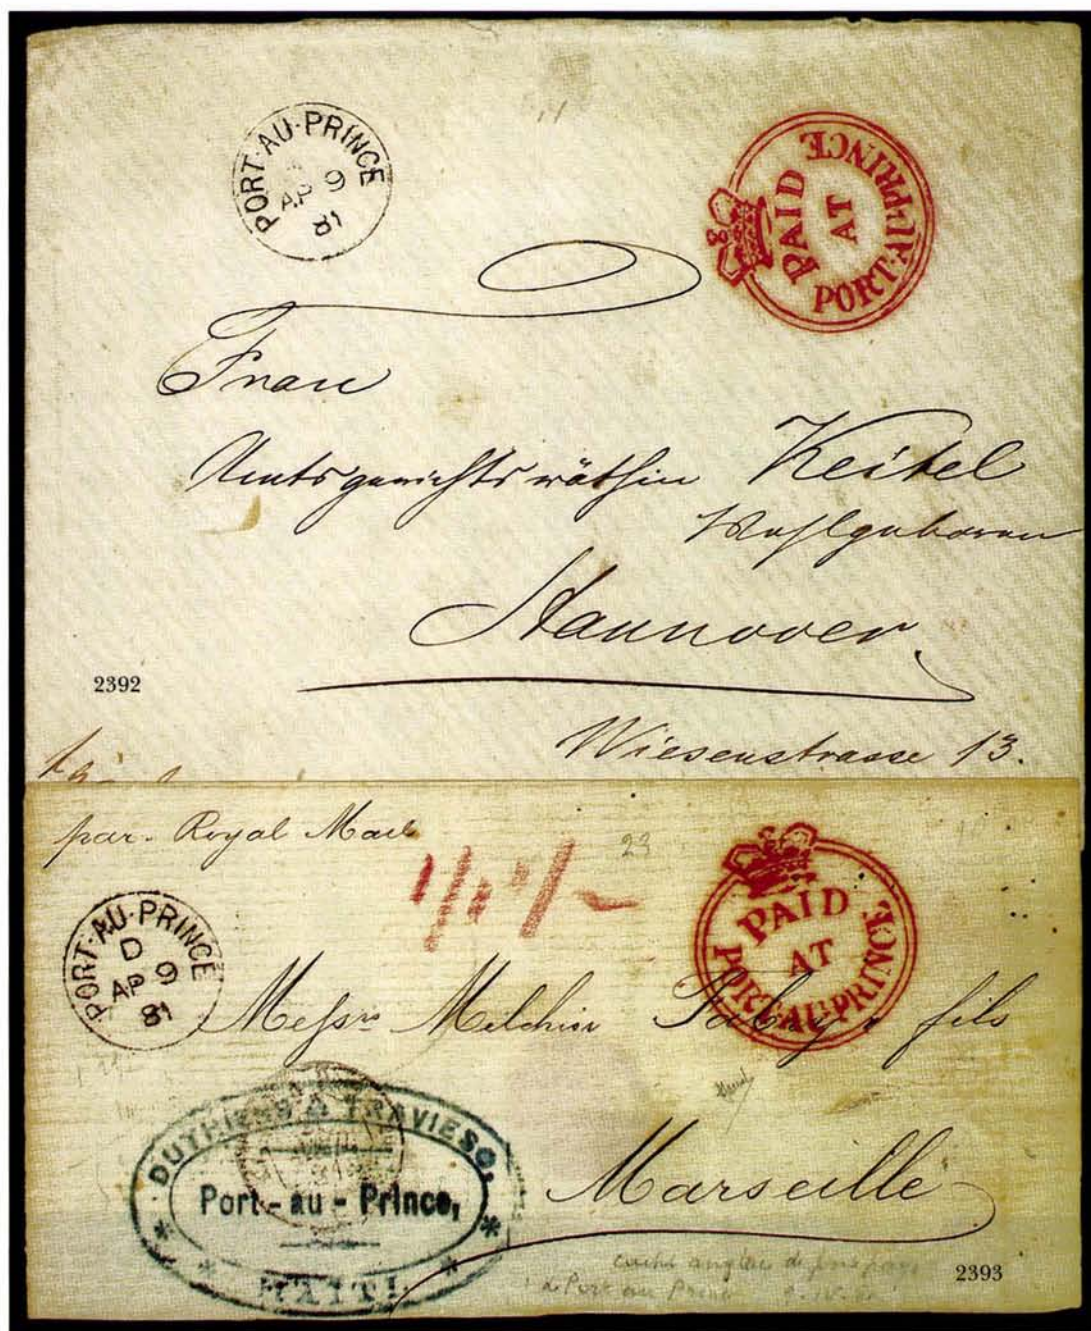 PORT-AU-PRINCE
AP 9
81
PAID
AT
PORT-AU-PRINCE
Frau
Amtsgerichtsräthin Keitel
Wohlgeboren
Hannover.
2392
Wiesenstrasse 13.
par. Royal Mail
23
PORT-AU-PRINCE
D
AP 9
81
PAID
AT
PORT-AU-PRINCE
Messrs Melchior fils
DUTHIERS & TRAVIESO,
Port-au-Prince,
HAITI.
Marseille
cachet anglais de port payé
de Port au Prince
2393